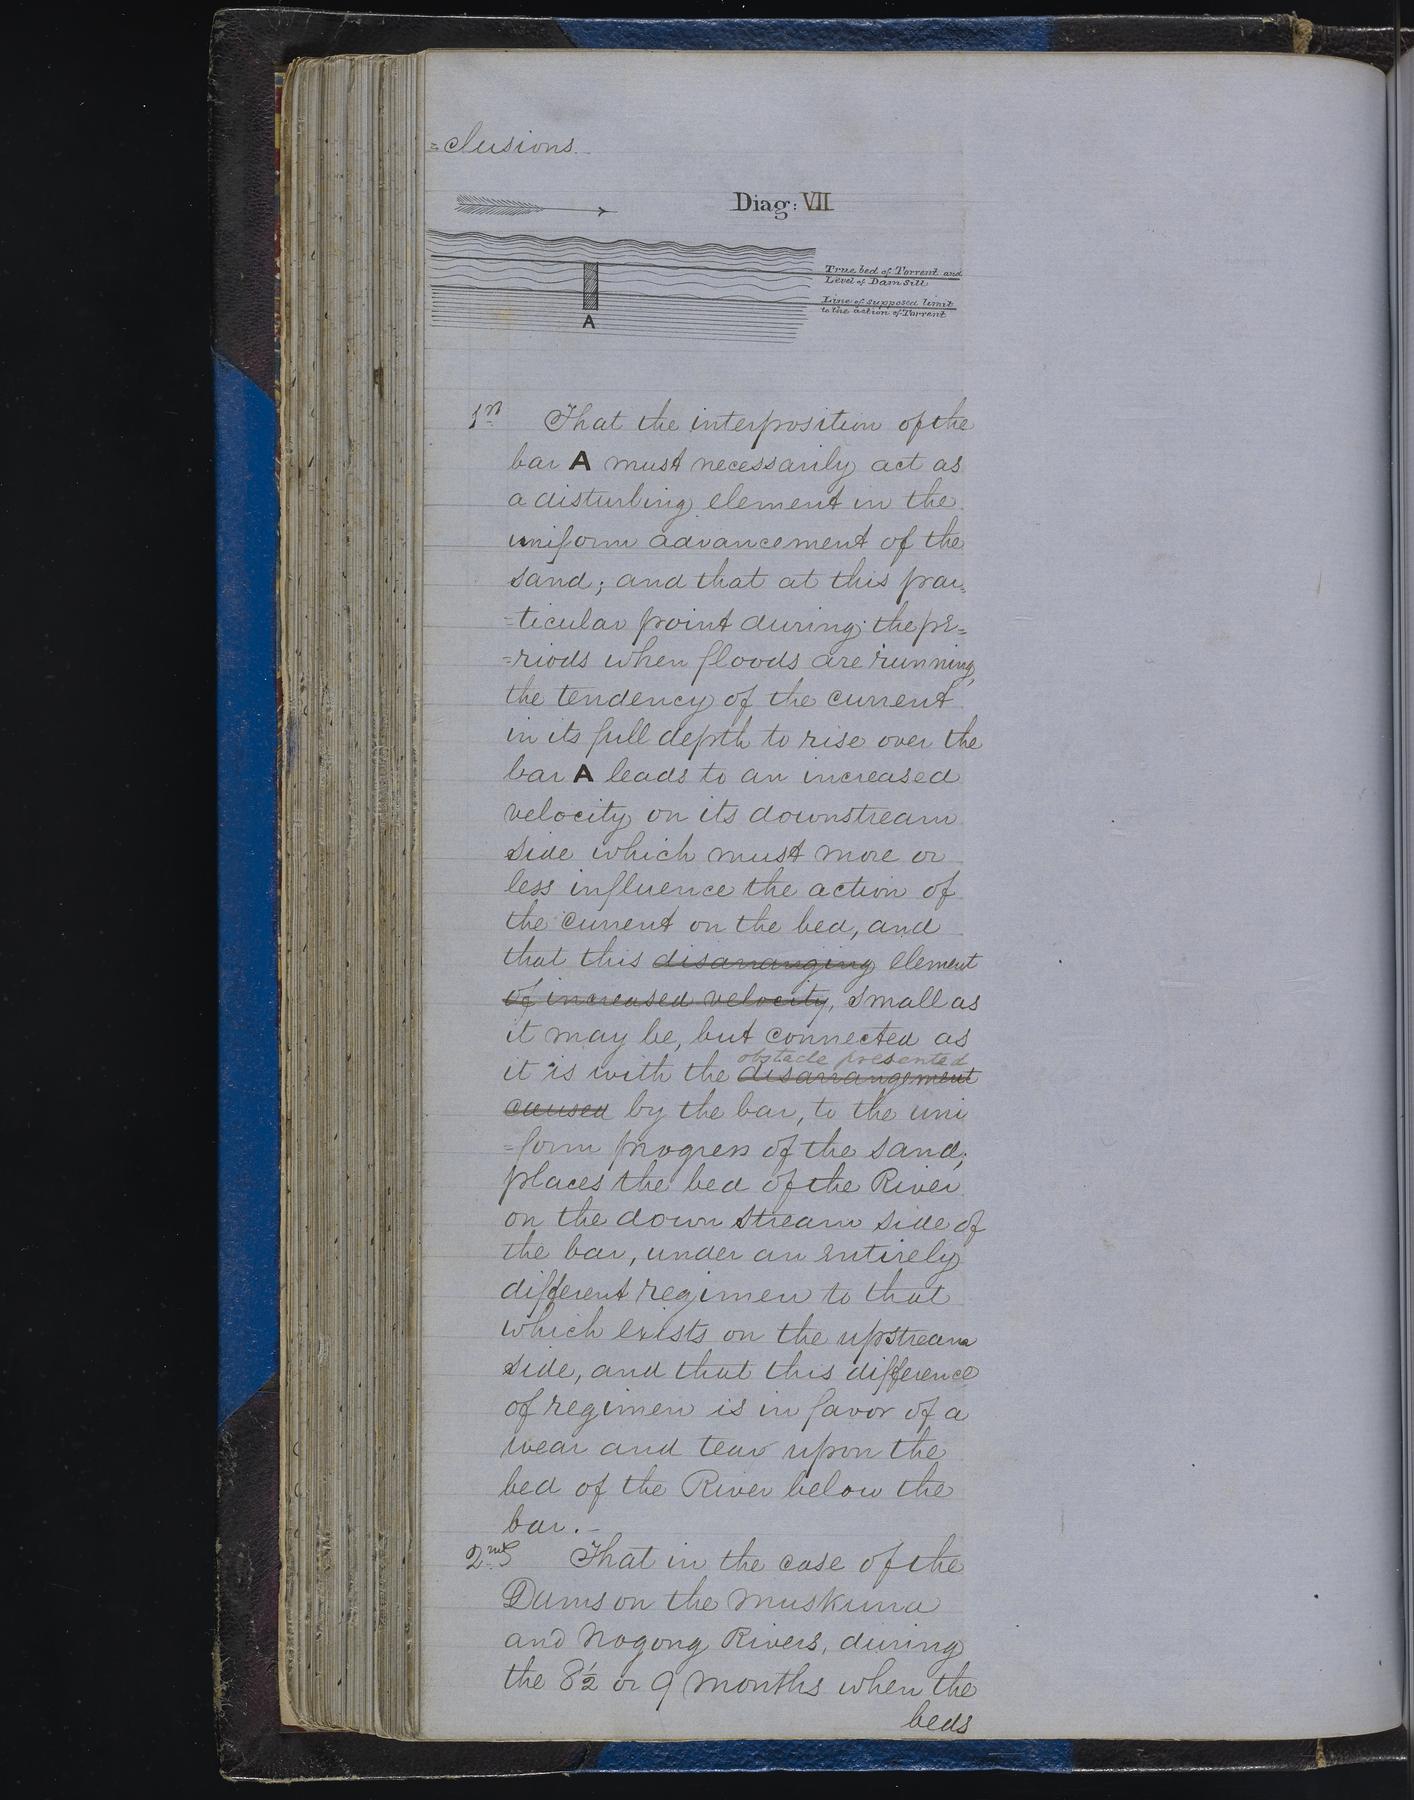 =clusions.
Diag: VII
True bed of Torrent and
Level of Dam Sill
Line of supposed limit
to the action of Torrent
A
1st That the interposition of the
bar A must necessarily act as
a disturbing element in the
uniform advancement of the
sand; and that at this par=
=ticular point during the pe=
=riods when floods are running,
the tendency of the current
in its full depth to rise over the
bar A leads to an increased
velocity on its downstream
side which must more or
less influence the action of
the current on the bed, and
that this disarranging element
of increased velocity, small as
it may be, but connected as
obstacle presented
it is with the disarrangement
caused by the bar, to the uni
=form progress of the sand,
places the bed of the River
on the down stream side of
the bar, under an entirely
different regimen to that
which exists on the upstream
side, and that this difference
of regimen is in favor of a
wear and tear upon the
bed of the River below the
bar.-
2nd That in the case of the
Dams on the Muskurra
and Nogong Rivers, during
the 8½ or 9 months when the
beds